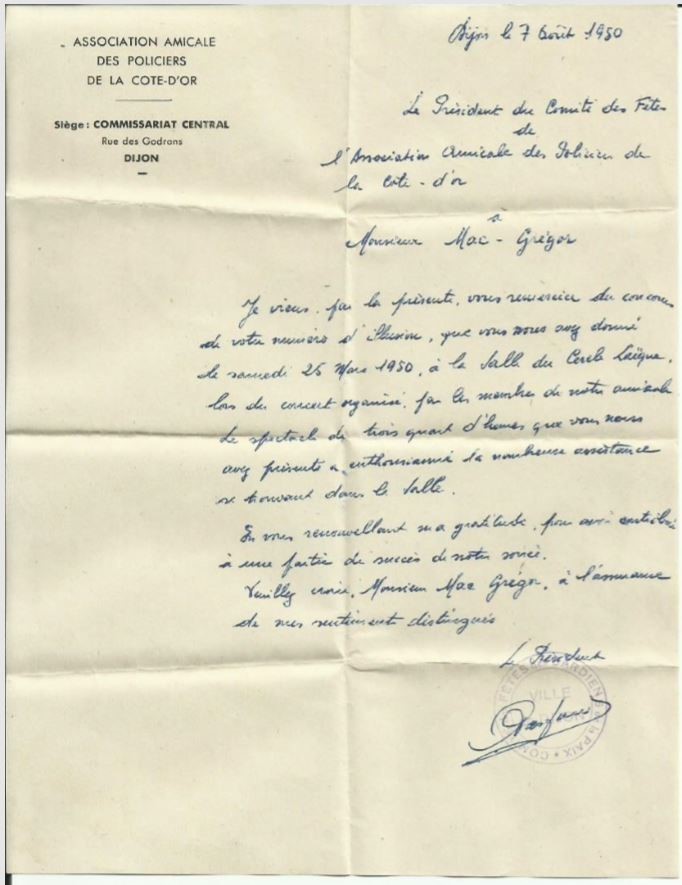 ASSOCIATION AMICALE
DES POLICIERS
DE LA COTE-D'OR
Siège: COMMISSARIAT CENTRAL
Rue des Godrans
DIJON
Dijon le 7 Août 1950
Le Président du Comité des Fêtes
de
l'Association Amicale des Policiers de
la Côte-d'or
à
Monsieur Mac-Grégor
Je viens, par la présente, vous remercier du concours
de votre numéro d'illusion, que vous nous avez donné
le samedi 25 Mars 1950, à la Salle du Cercle Laïque,
lors du concert organisé, par les membres de notre amicale
Le spectacle de trois quart d'heures que vous nous
avez présenté a enthousiasmé la nombreuse assistance
se trouvant dans la Salle.
En vous renouvellant ma gratitude, pour avoir contribué
à une partie du succès de notre soirée.
Veuillez croire, Monsieur Mac Grégor, à l'assurance
de mes sentiments distingués
Le Président
FETES GARDIENS DE LA PAIX
VILLE
DIJON